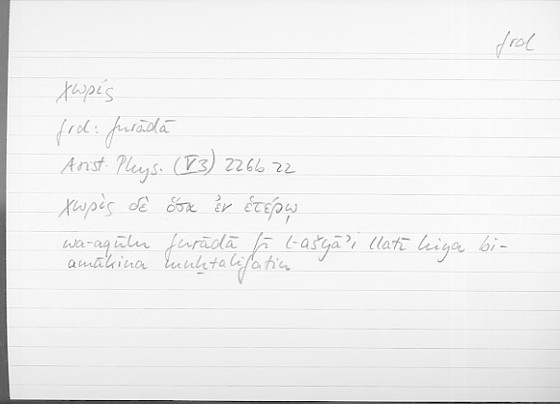 frd
χωρίς
frd: furādā
Arist. Phys. (V3) 226b22
χωρὶς δὲ ὅσα ἐν ἑτέρῳ
wa-aqūlu furādā fī l-ašyāʾi llatī hiya bi-
amākina muḫtalifatin